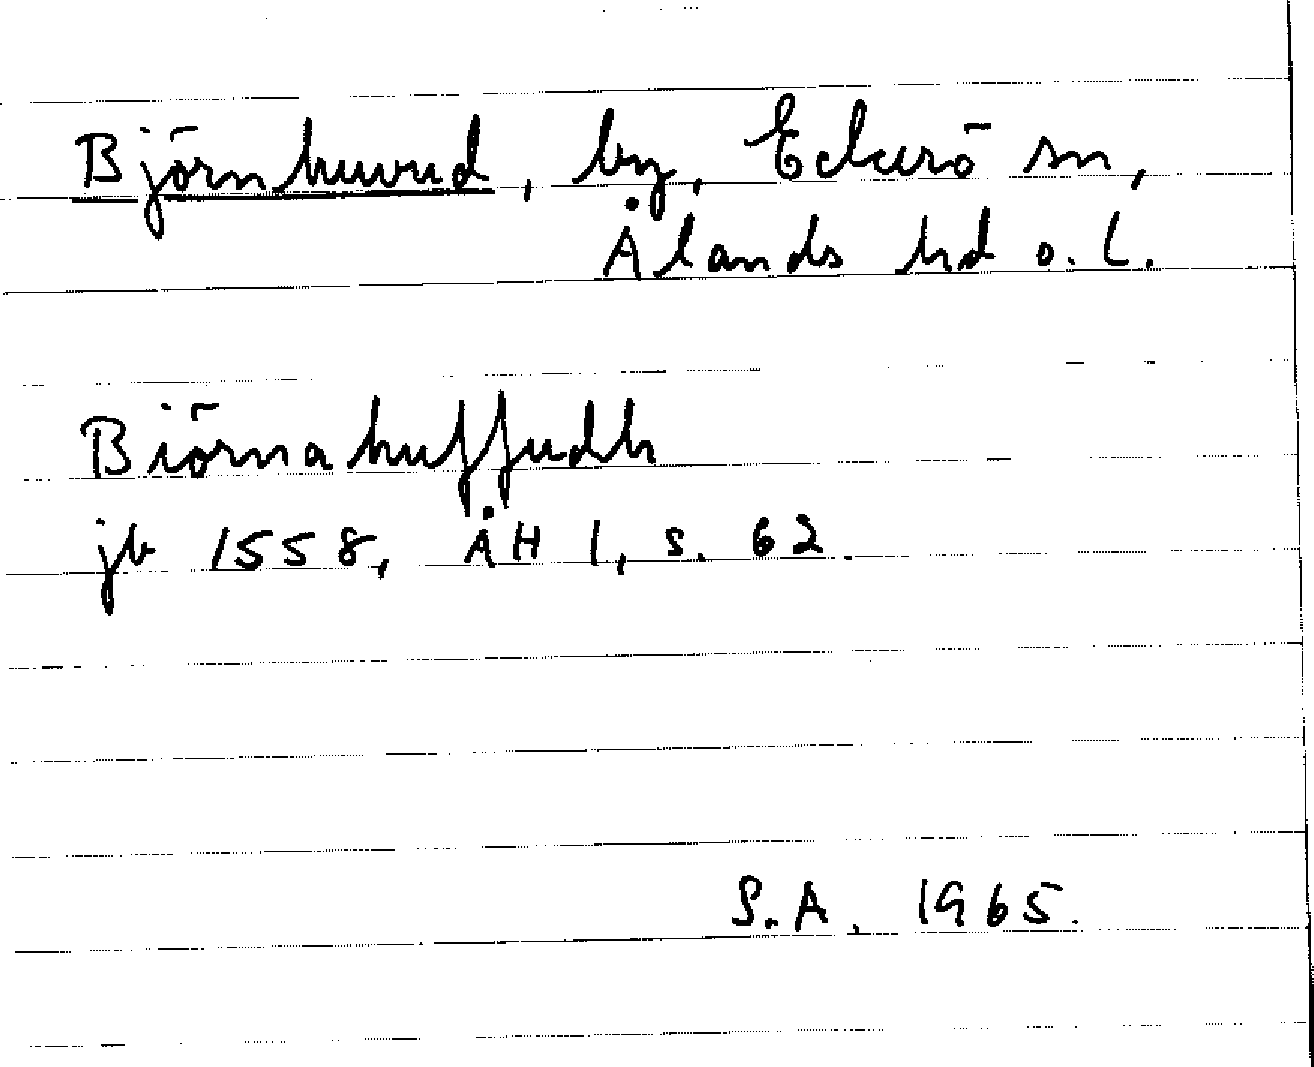 Björnhuvud, by, Eckerö sn,
Ålands hd o. l.
Biörnahuffudh
jb 1558, ÅH 1, s. 62.
S.A. 1965.